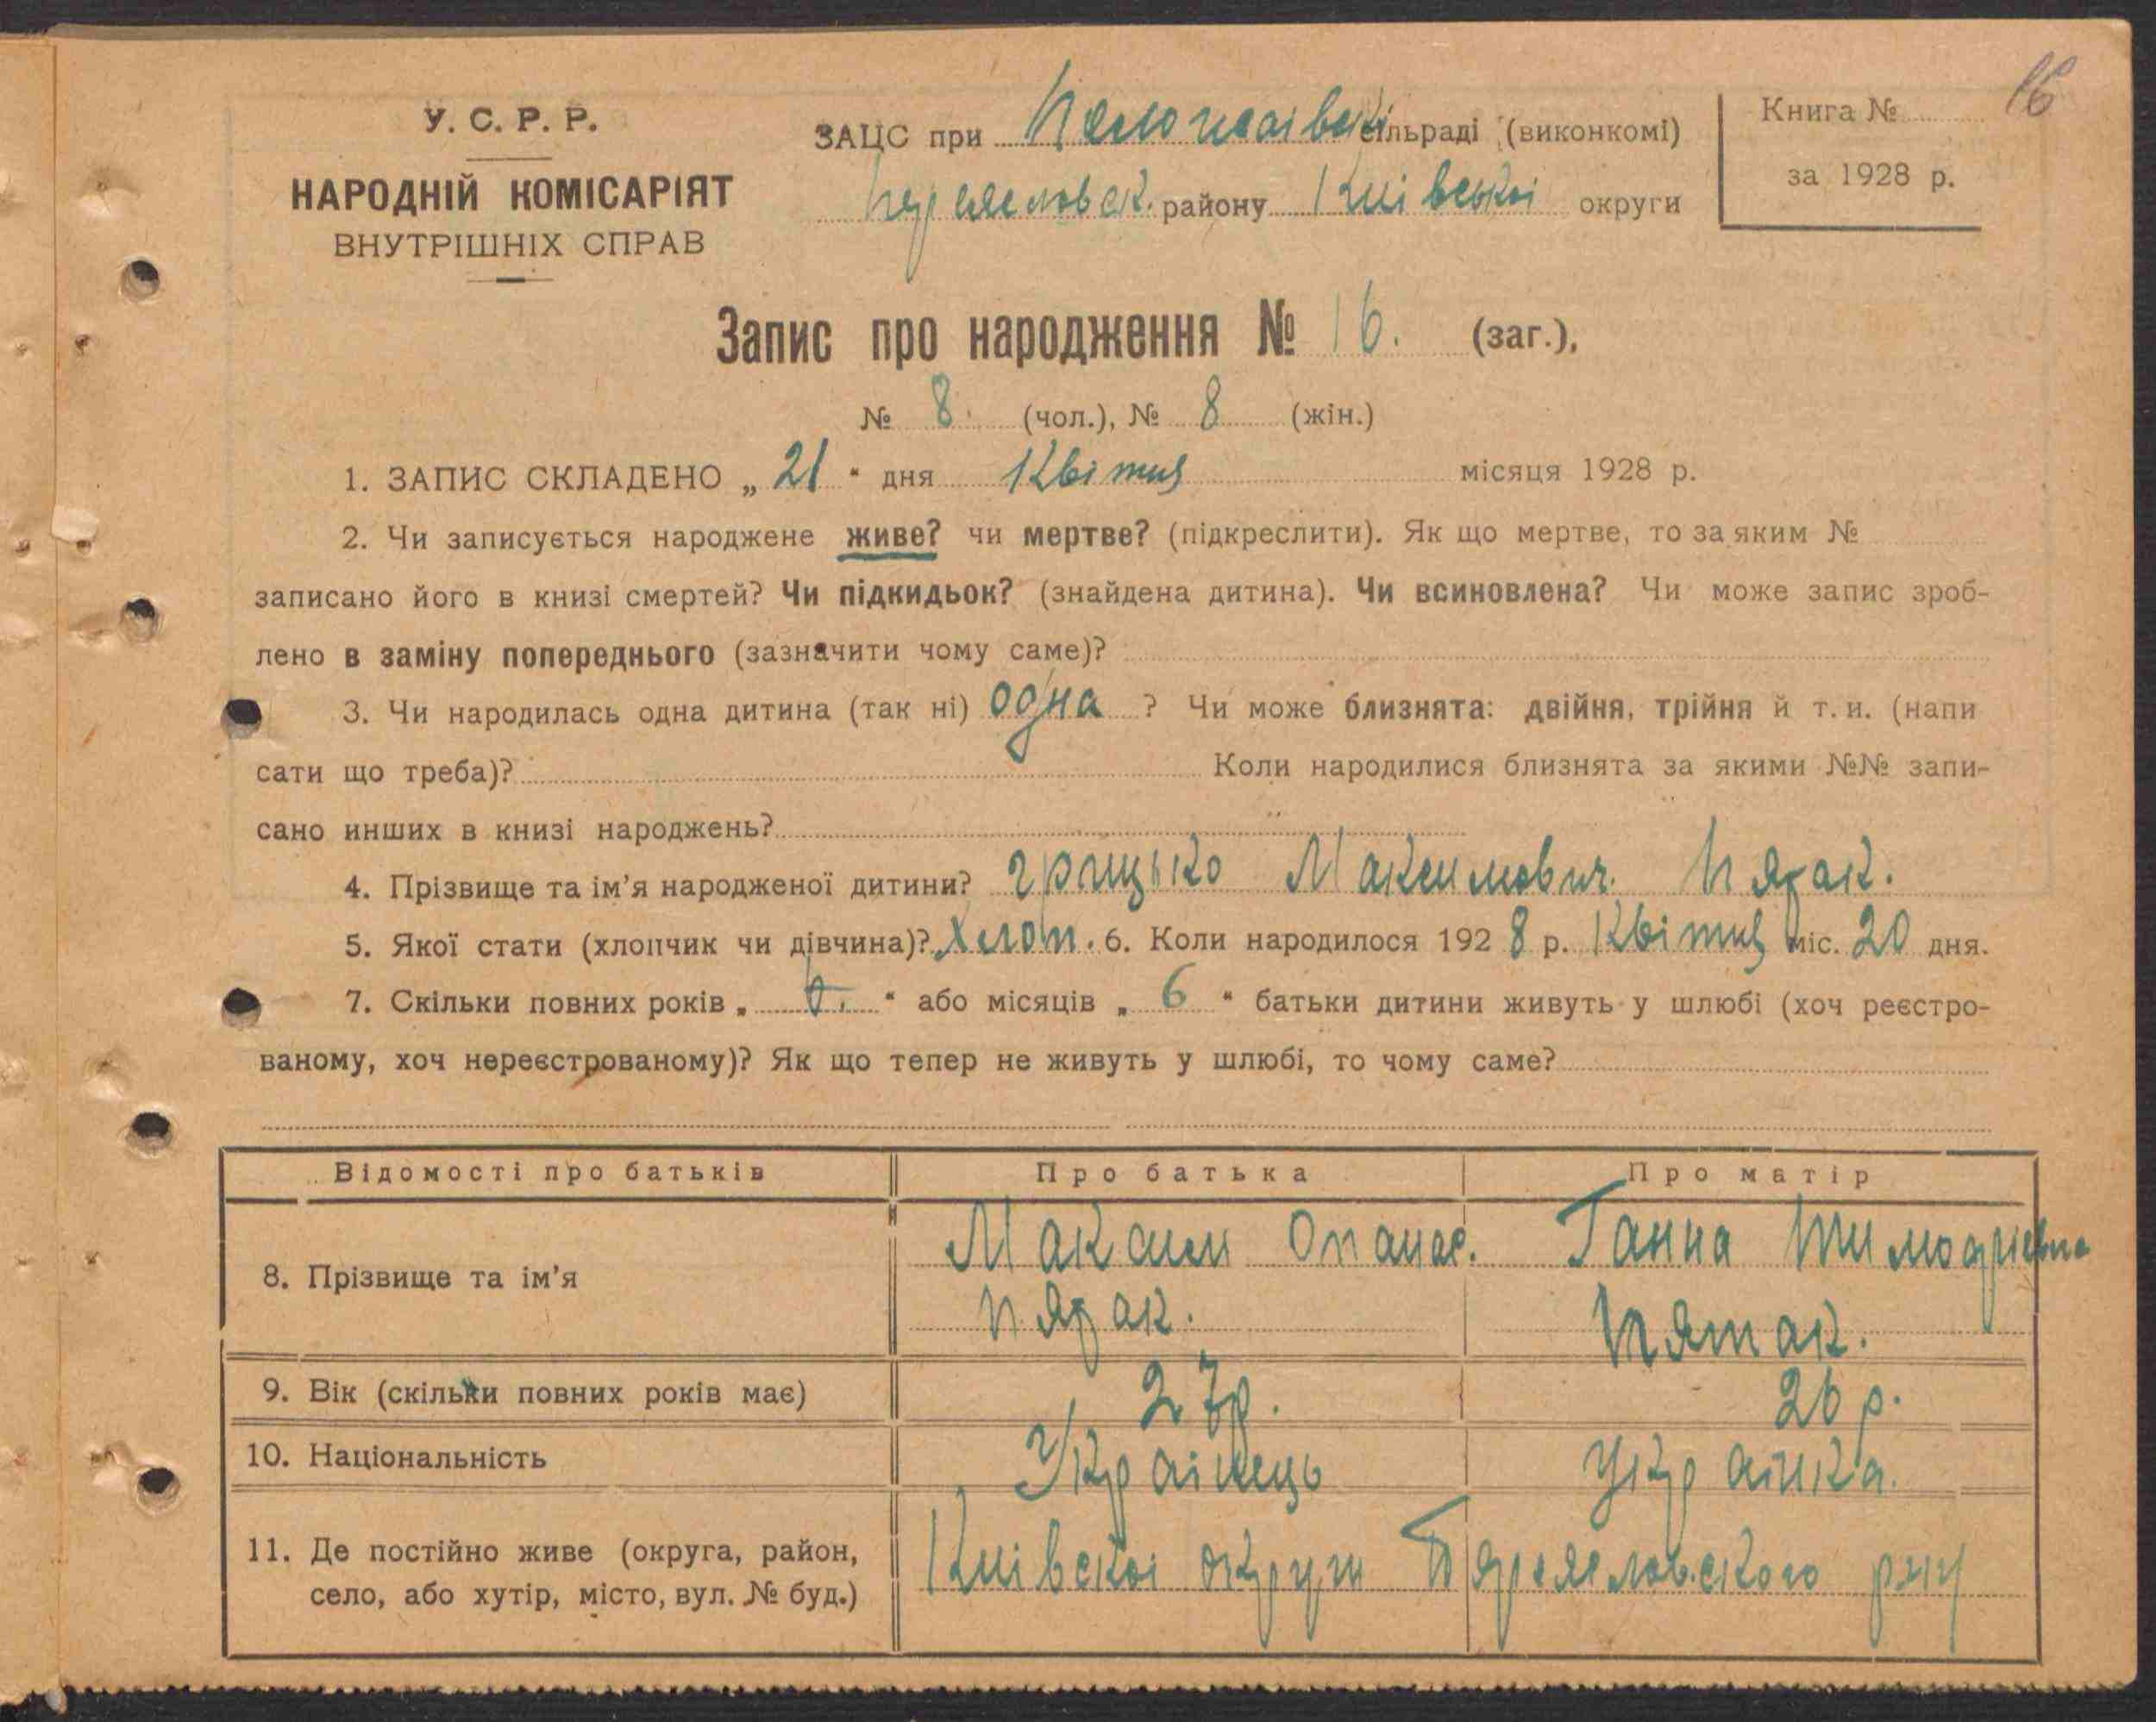 16
У. С. Р. Р.
НАРОДНІЙ КОМІСАРІЯТ
ВНУТРІШНІХ СПРАВ
ЗАЦС при сільраді (виконкомі)
району Київської округи
Книга №
за 1928 р.
Запис про народження № 16. (заг.),
№ 8. (чол.), № 8 (жін.)
1. ЗАПИС СКЛАДЕНО „ 21 “ дня Квітня місяця 1928 р.
2. Чи записується народжене живе? чи мертве? (підкреслити). Як що мертве, то за яким №
записано його в книзі смертей? Чи підкидьок? (знайдена дитина). Чи всиновлена? Чи може запис зроб-
лено в заміну попереднього (зазначити чому саме)?
3. Чи народилась одна дитина (так ні) одна ? Чи може близнята: двійня, трійня й т. и. (напи
сати що треба)? Коли народилися близнята за якими №№ запи-
сано инших в книзі народжень?
4. Прізвище та ім’я народженої дитини? Грицько Максимович. Пятак.
5. Якої стати (хлопчик чи дівчина)? Хлоп. 6. Коли народилося 192 8 р. Квітня міс. 20 дня.
7. Скільки повних років „ “ або місяців „ 6 “ батьки дитини живуть у шлюбі (хоч реєстро-
ваному, хоч нереєстрованому)? Як що тепер не живуть у шлюбі, то чому саме?
Відомості про батьків Про батька Про матір
8. Прізвище та ім’я Максим Опанас. Ганна
Пятак. Пятак.
9. Вік (скільки повних років має) 27р. 26 р.
10. Національність Українець Українка.
11. Де постійно живе (округа, район,
село, або хутір, місто, вул. № буд.) Київскої округи Переяславского р-ну